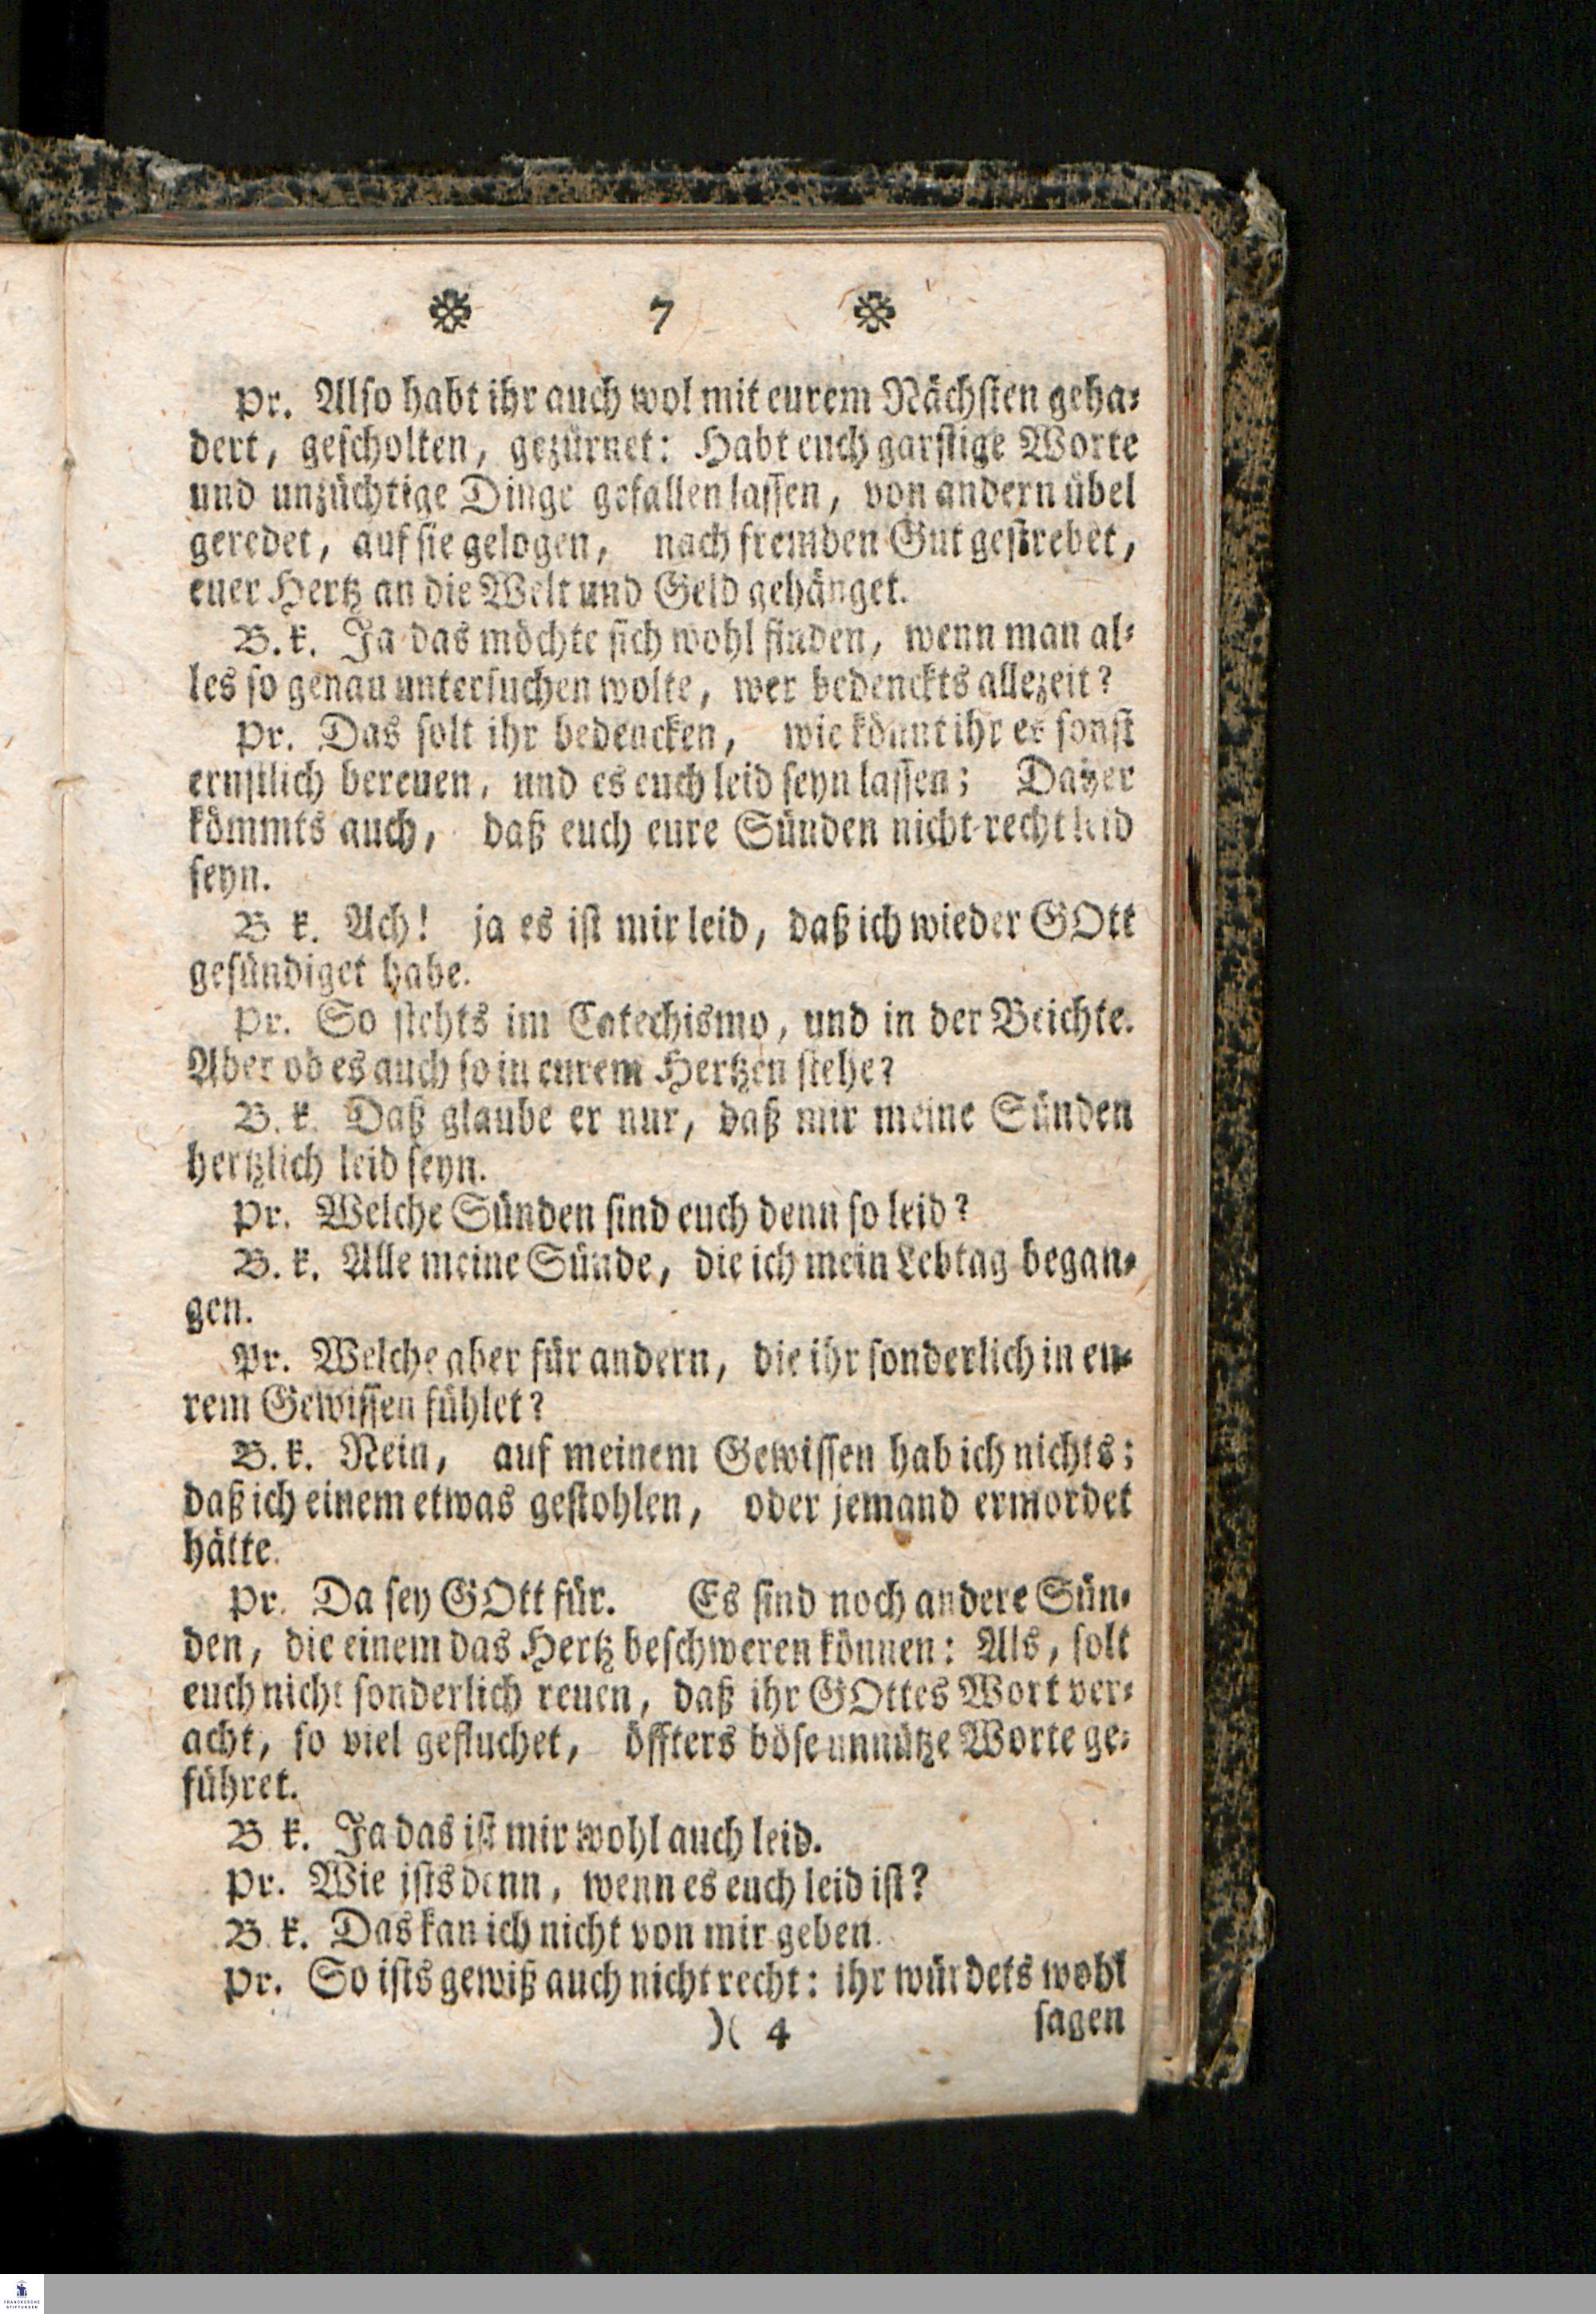 ❇ 7 ❇
Pr. Also habt ihr auch wol mit eurem Nächsten geha-
dert, gescholten, gezürnet: Habt euch garstige Worte
und unzüchtige Dinge gefallen lassen, von andern übel
geredet, auf sie gelogen, nach fremden Gut gestrebet,
euer Hertz an die Welt und Geld gehänget.
B. k. Ja das möchte sich wohl finden, wenn man al-
les so genau untersuchen wolte, wer bedenckts allezeit?
Pr. Das solt ihr bedencken, wie könnt ihr es sonst
ernstlich bereuen, und es euch leid seyn lassen; Daher
kömmts auch, daß euch eure Sünden nicht recht leid
seyn.
B k. Ach! ja es ist mir leid, daß ich wieder GOtt
gesündiget habe.
Pr. So stehts im Catechismo, und in der Beichte.
Aber ob es auch so in eurem Hertzen stehe?
B. k. Daß glaube er nur, daß mir meine Sünden
hertzlich leid seyn.
Pr. Welche Sünden sind euch denn so leid?
B. k. Alle meine Sünde, die ich mein Lebtag began-
gen.
Pr. Welche aber für andern, die ihr sonderlich in eu-
rem Gewissen fühlet?
B. k. Nein, auf meinem Gewissen hab ich nichts;
daß ich einem etwas gestohlen, oder jemand ermordet
hätte.
Pr. Da sey GOtt für. Es sind noch andere Sün-
den, die einem das Hertz beschweren können: Als, solt
euch nicht sonderlich reuen, daß ihr GOttes Wort ver-
acht, so viel gefluchet, öffters böse unnütze Worte ge-
führet.
B k. Ja das ist mir wohl auch leid.
Pr. Wie ists denn, wenn es euch leid ist?
B. k. Das kan ich nicht von mir geben.
Pr. So ists gewiß auch nicht recht: ihr würdets wohl
)( 4 sagen
FRANCKESCHE
STIFTUNGEN